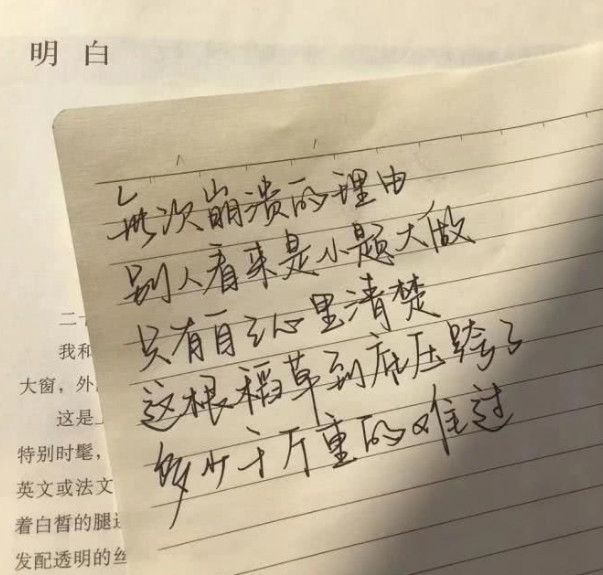 明白
每次崩溃的理由
别人看来是小题大做
只有自己心里清楚
这根稻草到底压跨了
多少千斤重的难过
二十
我和
大窗，外
这是上
特别时髦，
英文或法文
着白皙的腿
发配透明的丝